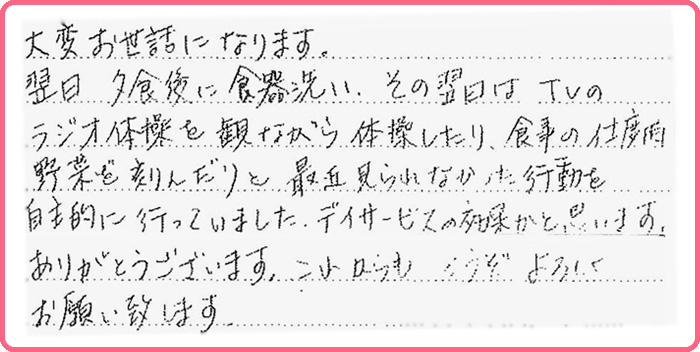 大変お世話になります。
翌日 夕食後に食器洗い、その翌日は TVの
ラジオ体操を観ながら体操したり、食事の仕度
野菜を刻んだりと 最近見られなかった行動を
自主的に行っていました。デイサービスの効果かと思います。
ありがとうございます。これからも どうぞ よろしく
お願い致します。